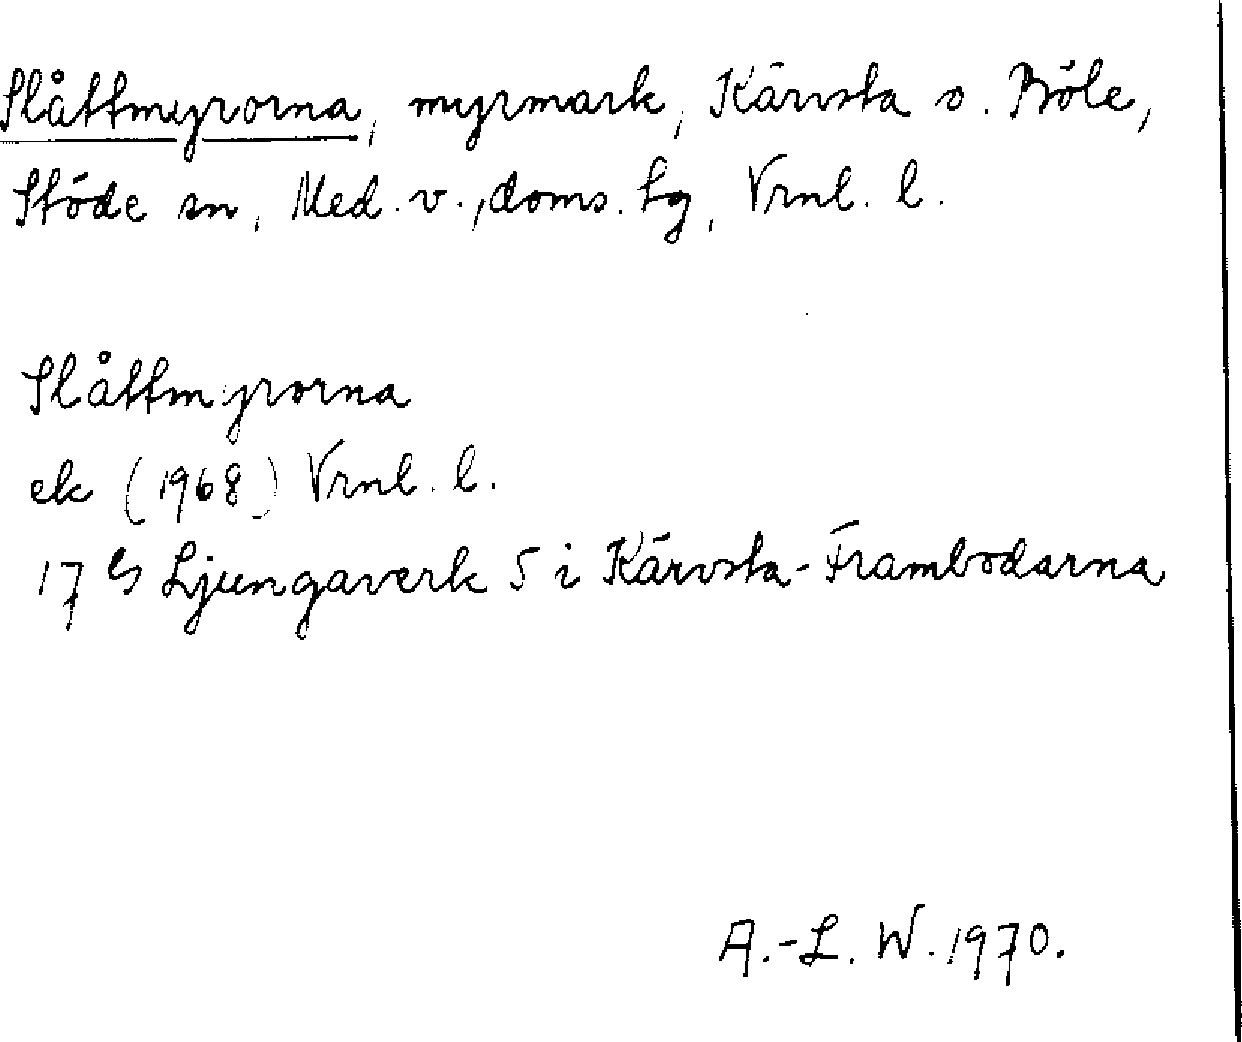 Slåttmyrorna, myrmark, Kärvsta o. Böle,
Stöde sn, Med. v., doms. tg, Vrnl. l.
Slåttmyrorna
ek (1968) Vrnl. l.
17 Ljungaverk 5 i Kärvsta-Frambodarna
A.-L. W. 1970.